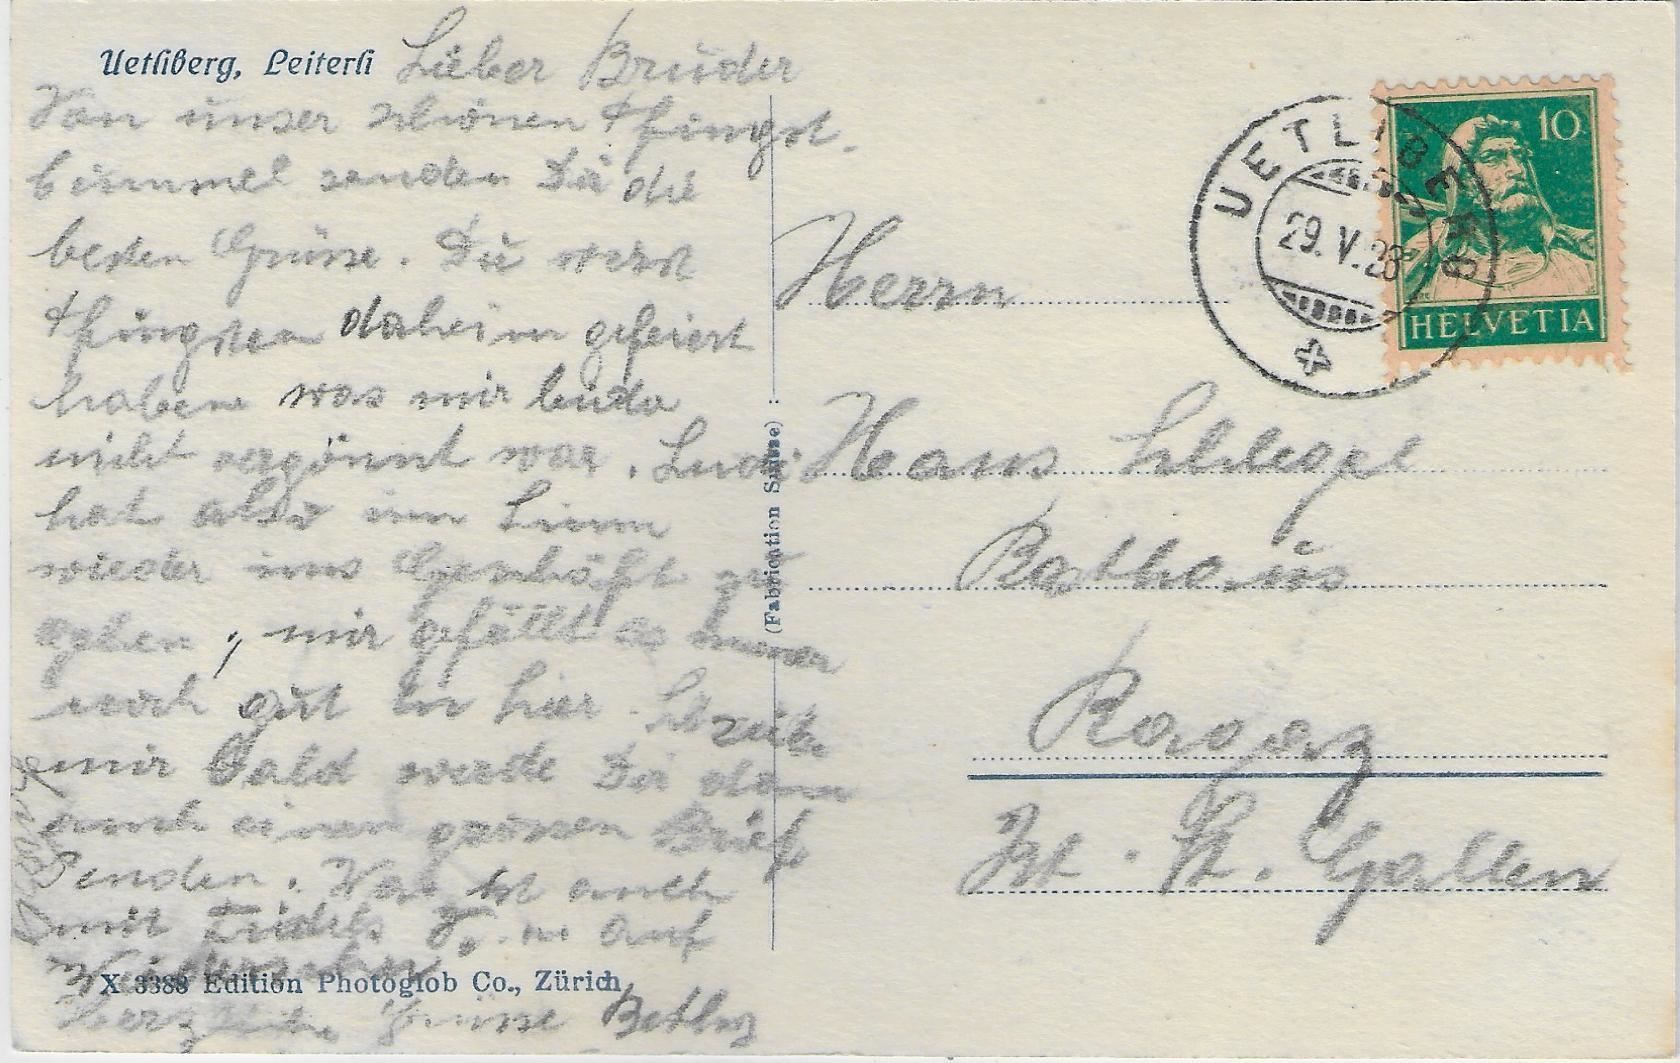 Uetliberg, Leiterli
Lieber Bruder
Von unser schönen Pfingst-
bummel senden Dir die
besten Grüsse. Du wirst
Pfingsten daheim gefeiert
haben was mir leider
nicht vergönnt war. Ludi
hat also im Sinn
wieder ins Geschäft zu
gehen, mir gefällt es immer
noch gut in hier. Schreibe
mir bald werde Dir dann
auch einen grossen Brief
Senden. Was ist auch
mit Fidels auf
Wiedersehn
Herzliche Grüsse
X 3388 Edition Photoglob Co., Zürich
(Fabrication Suisse)
UETLIBERG
29.V.28
10
HELVETIA
Herrn
Hans Schlegel
Rathaus
Ragaz
Kt. St. Gallen